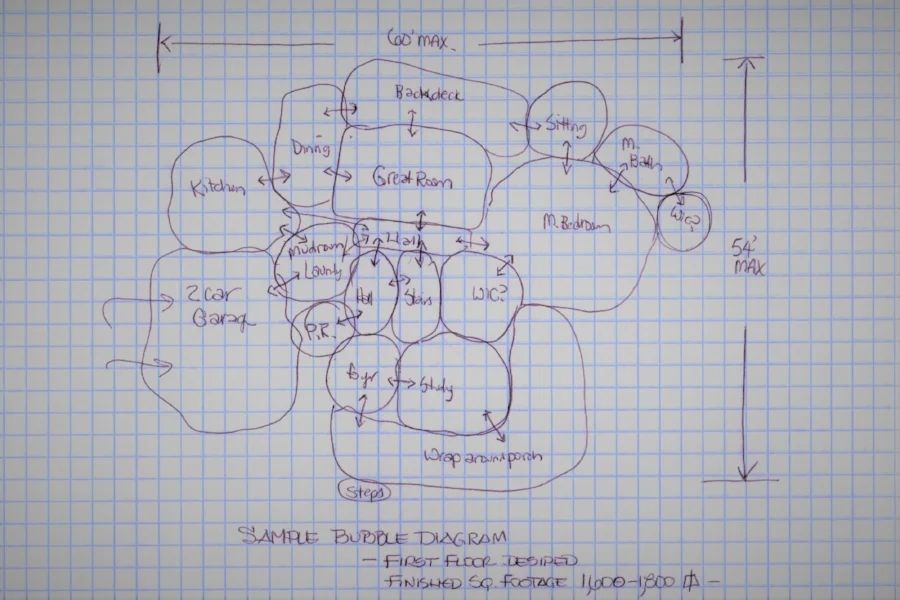 60' MAX
Back deck
Sitting
M.
Bath
Dining
Great Room
Kitchen
WIC?
M. Bedroom
Hall
Mudroom/
Laundry
54'
MAX
2 car
Garage
Hall
Stairs
WIC?
P.R.
Foyer
Study
Wrap around porch
Steps
SAMPLE BUBBLE DIAGRAM
- FIRST FLOOR DESIRED
FINISHED SQ. FOOTAGE 1,600-1,800 -